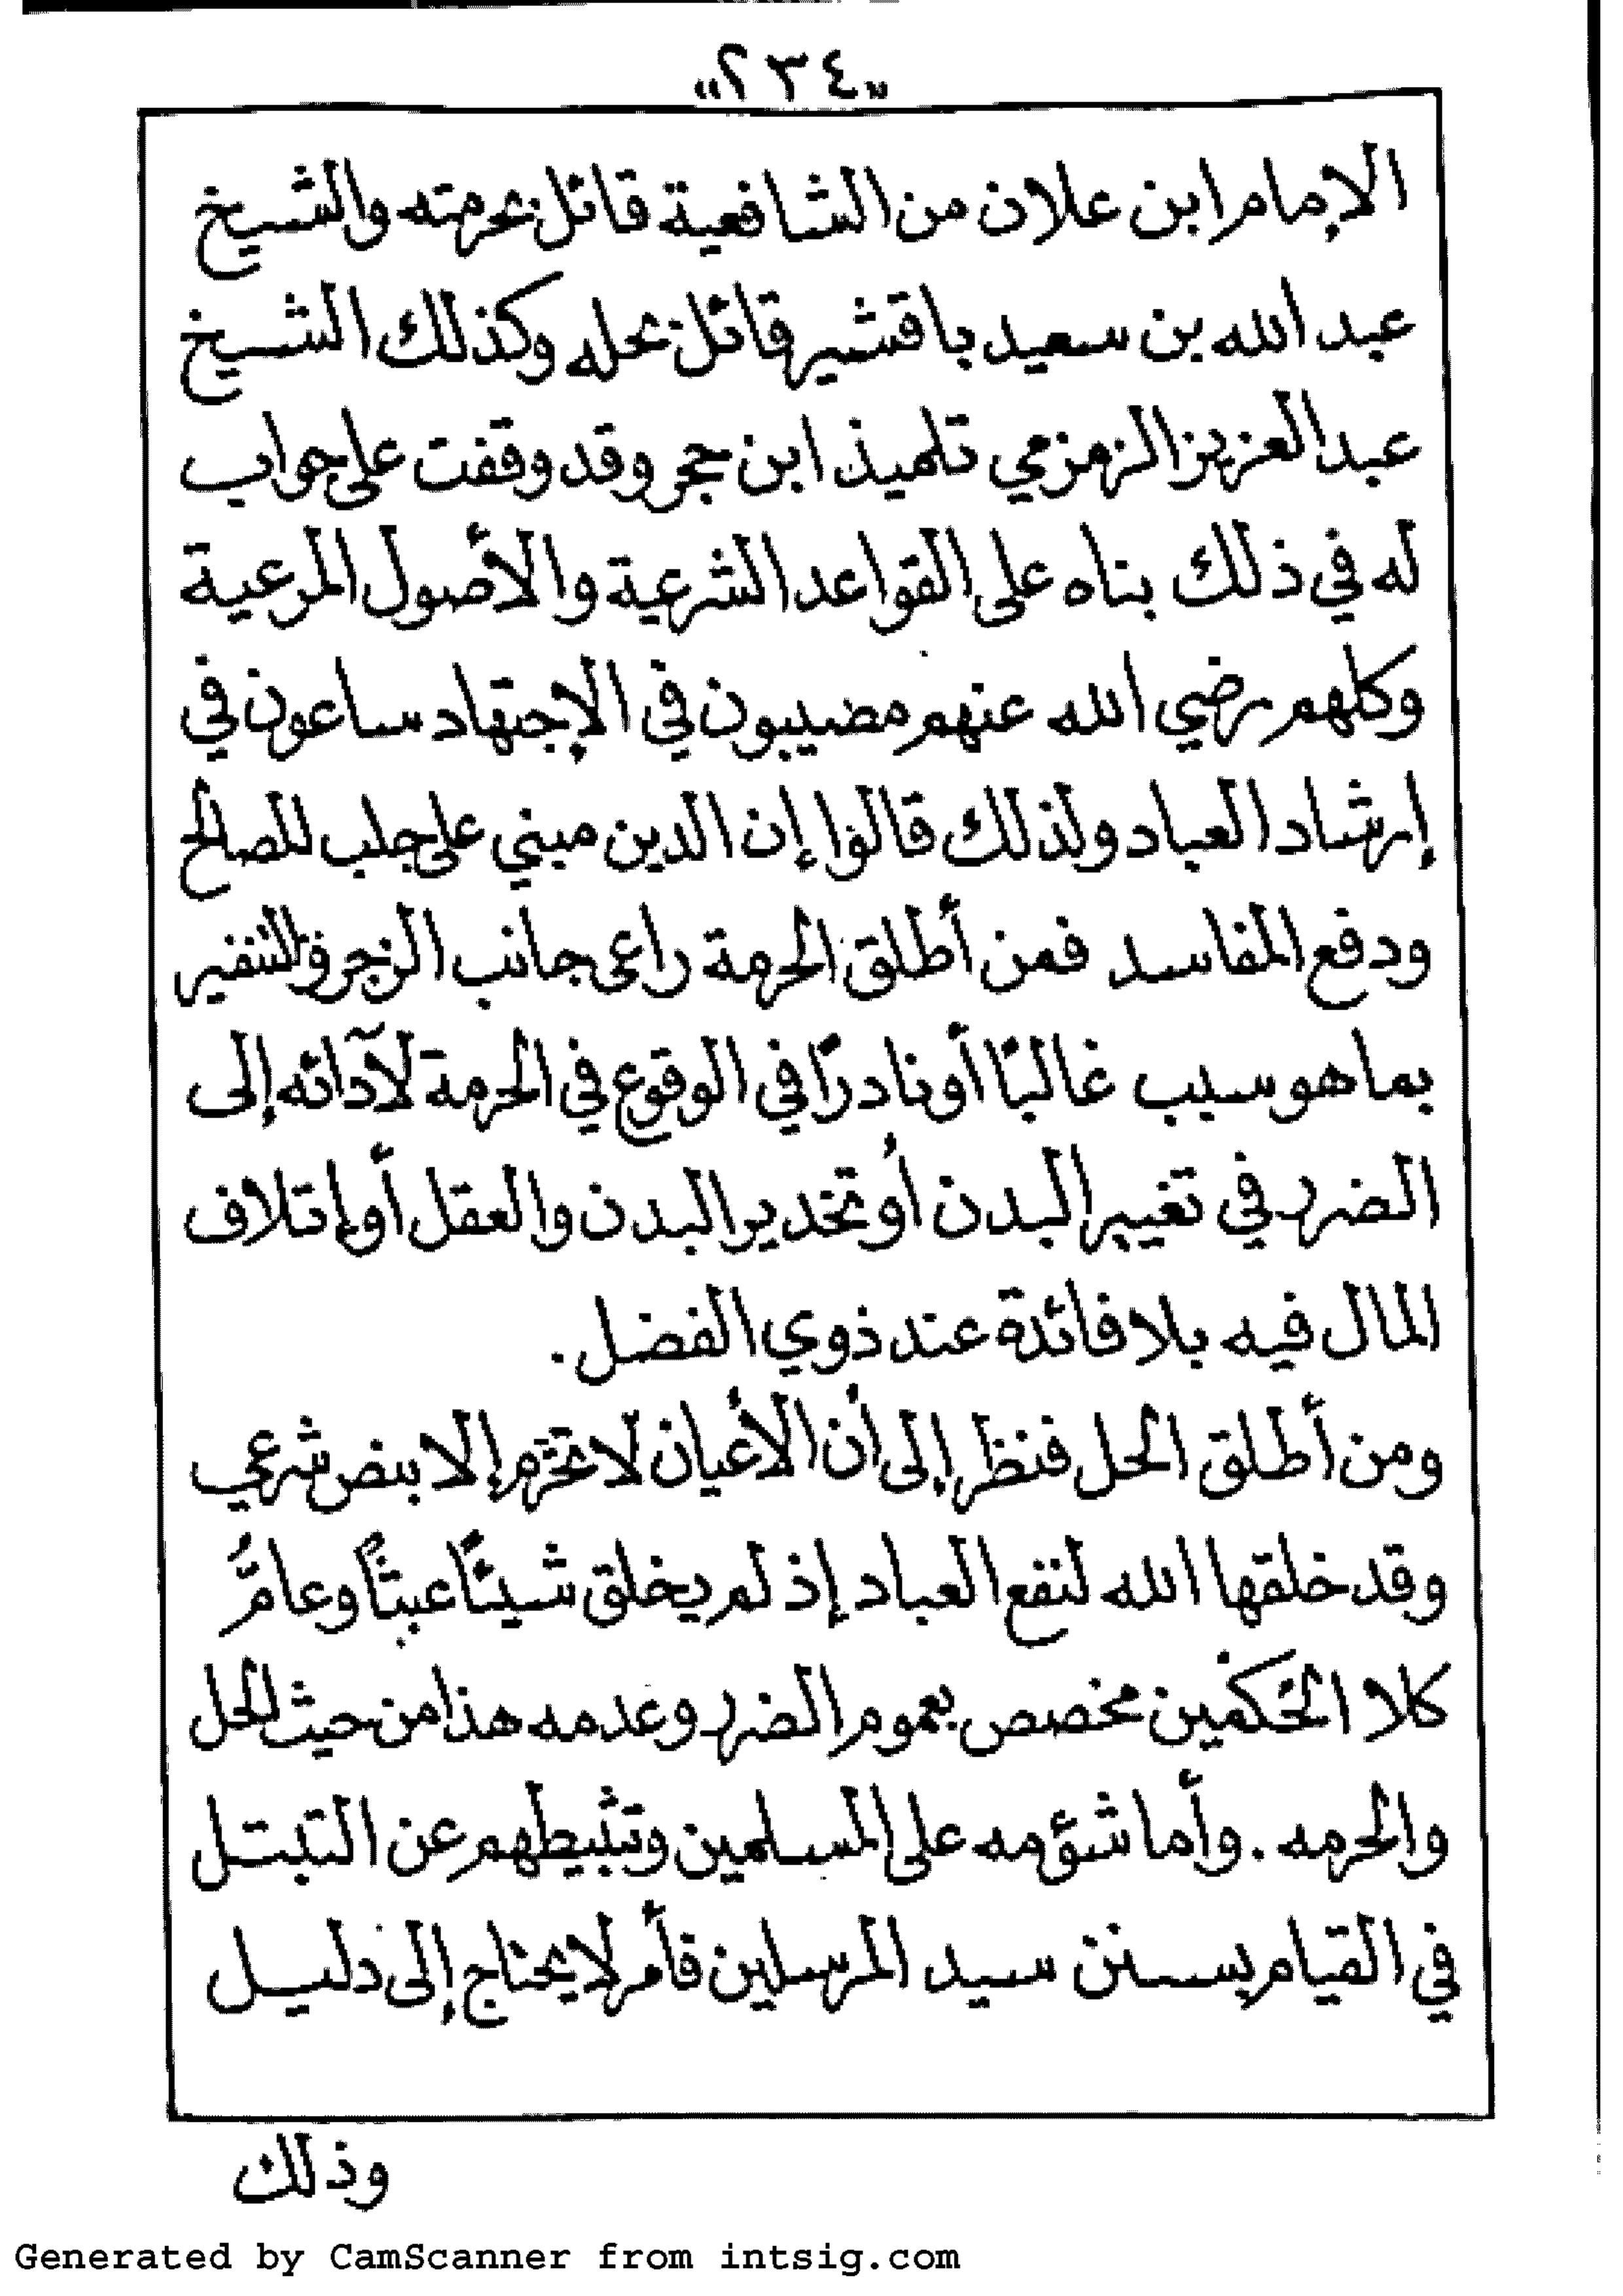 «٢٣٤»
الإمام ابن علان من الشافعية قائل بحرمته والشيخ
عبد الله بن سعيد باقشير قائل بحله وكذلك الشيخ
عبد العزيز الزمزمي تلميذ ابن حجر وقد وقفت على جواب
له في ذلك بناه على القواعد الشرعية والأصول المرعية
وكلهم رضي الله عنهم مصيبون في الإجتهاد ساعون في
إرشاد العباد ولذلك قالوا إن الدين مبني على جلب المصالح
ودفع المفاسد فمن أطلق الحرمة راعى جانب الزجر والتنفير
بما هو سبب غالبًا أو نادرًا في الوقوع في الحرمة لآدائه إلى
الضرر في تغيير البدن أو تخدير البدن والعقل أو إتلاف
المال فيه بلا فائدة عند ذوي الفضل.
ومن أطلق الحل فنظر إلى أن الأعيان لا تحرّم إلا بنص شرعي
وقد خلقها الله لنفع العباد إذ لم يخلق شيئًا عبثًا وعامُّ
كلا الحُكمين مخصص بعموم الضرر وعدمه هذا من حيث الحل
والحرمه. وأما شؤمه على المسلمين وتثبيطهم عن التبتل
في القيام بسنن سيد المرسلين فأمر لا يحتاج إلى دليل
وذلك
Generated by CamScanner from intsig.com